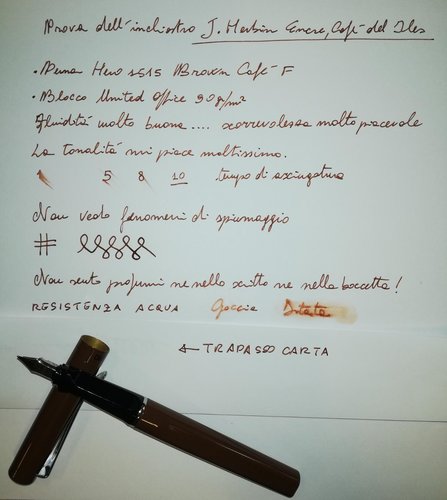 Prova dell'inchiostro J. Herbin Encre, Café del Iles
• Penna Hero 1515 Brown Café F
• Blocco United Office 90g/m²
Fluidità molto buona.... scorrevolezza molto piacevole
La tonalità mi piace moltissimo.
1 5 8 10 tempo di asciugatura
Non vedo fenomeni di spiumaggio
#
Non sento profumi ne nello scritto ne nella boccetta!
RESISTENZA ACQUA Goccia Ditata
← TRAPASSO CARTA